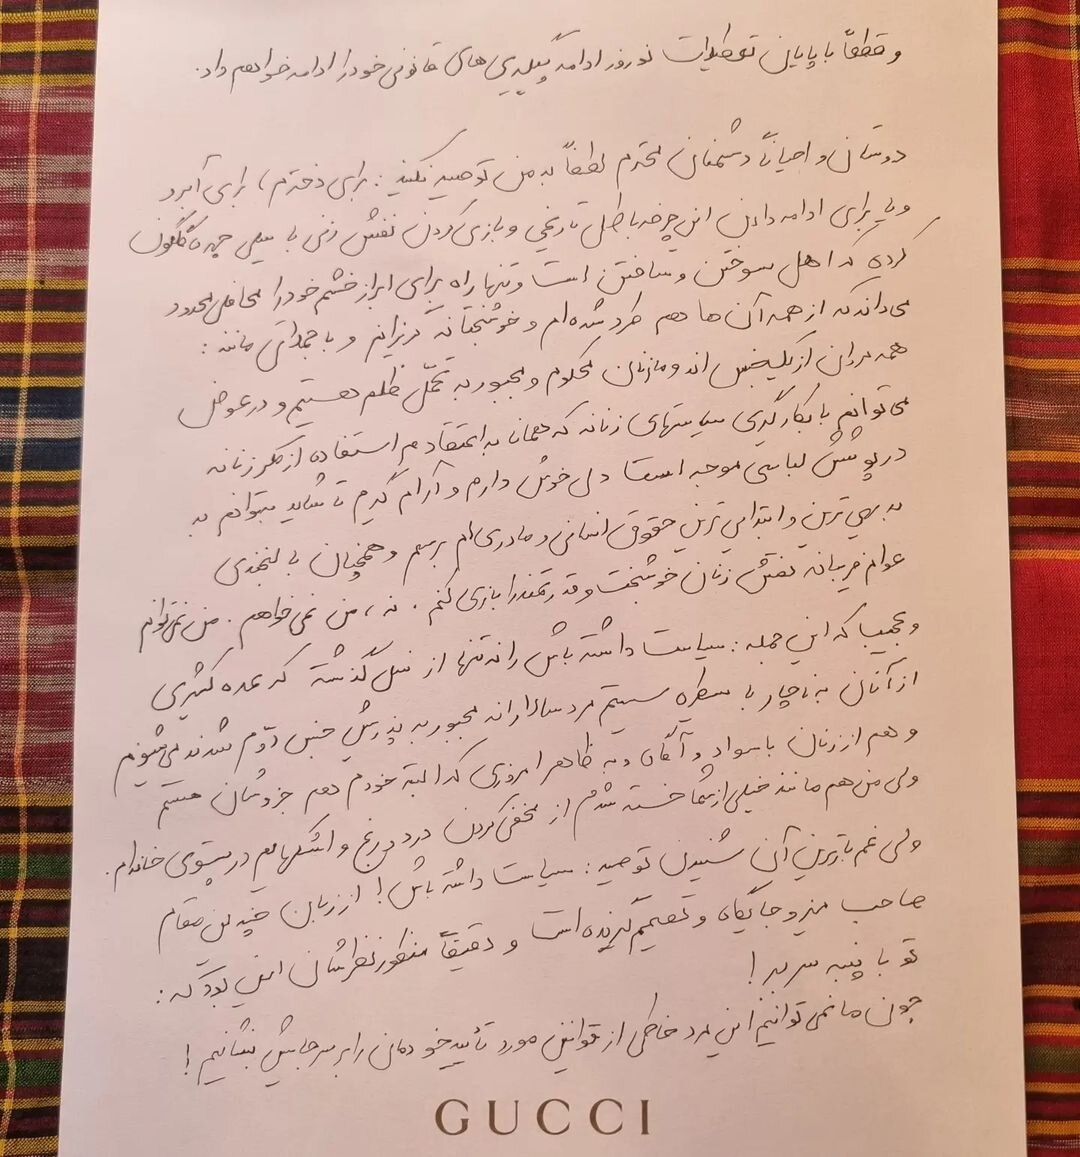 و قطعاً با پایان تعطیلات نوروز ادامه پیگیری‌های قانونی خود را ادامه خواهم داد.
دوستان و احیاناً دشمنان محترم لطفاً به من توصیه نکنید: برای دخترم، برای آبرو
و یا برای ادامه دادن این چرخه باطل تاریخی و بازی کردن نقش زنی با سیلی چهره گلگون
کرده که اهل سوختن و ساختن است و تنها راه برای ابراز خشم خود را محافل محدود
می‌داند که از همه آن‌ها هم طرد شده‌ام و خوشبختانه گریزانم و با جملاتی مانند:
همه مردان از یک جنس‌اند و ما زنان محکوم و مجبور به تحمّل ظلم هستیم و در عوض
می‌توانم با بکارگیری سیاستهای زنانه که همانا به اعتقادم استفاده از مکر زنانه
در پوشش لباسی موجه است دل خوش دارم و آرام گیرم تا شاید بتوانم به
به بدیهی‌ترین و ابتدایی‌ترین حقوق انسانی و مادری‌ام برسم و همچنان با لبخندی
عوام فریبانه نقش زنان خوشبخت و قدرتمند را بازی کنم. نه، من نمی‌خواهم. من نمی‌توانم
و عجیبا که این جمله: سیاست داشته باش را نه تنها از نسل گذشته که عده کثیری
از آنان به ناچار با سیطره سیستم مردسالارانه مجبور به پذیرش جنس دوّم شدند می‌شنوم
و هم از زنان باسواد و آگاه و به ظاهر امروزی که البته خودم هم جزوشان هستم
ولی من هم مانند خیلی از شما خسته شدم از مخفی کردن درد و رنج و اشکهایم در پستوی خانه‌ام.
ولی غم بارترین آن شنیدن توصیه: سیاست داشته باش! از زبان چندین مقام
صاحب میز و جایگاه و تصمیم گیرنده است و دقیقاً منظور نظرشان این بود که:
تو با پنبه سر ببر!
چون ما نمی‌توانیم این مرد خاطی از قوانین مورد تأیید خودمان را بر سر جایش بنشانیم!
GUCCI